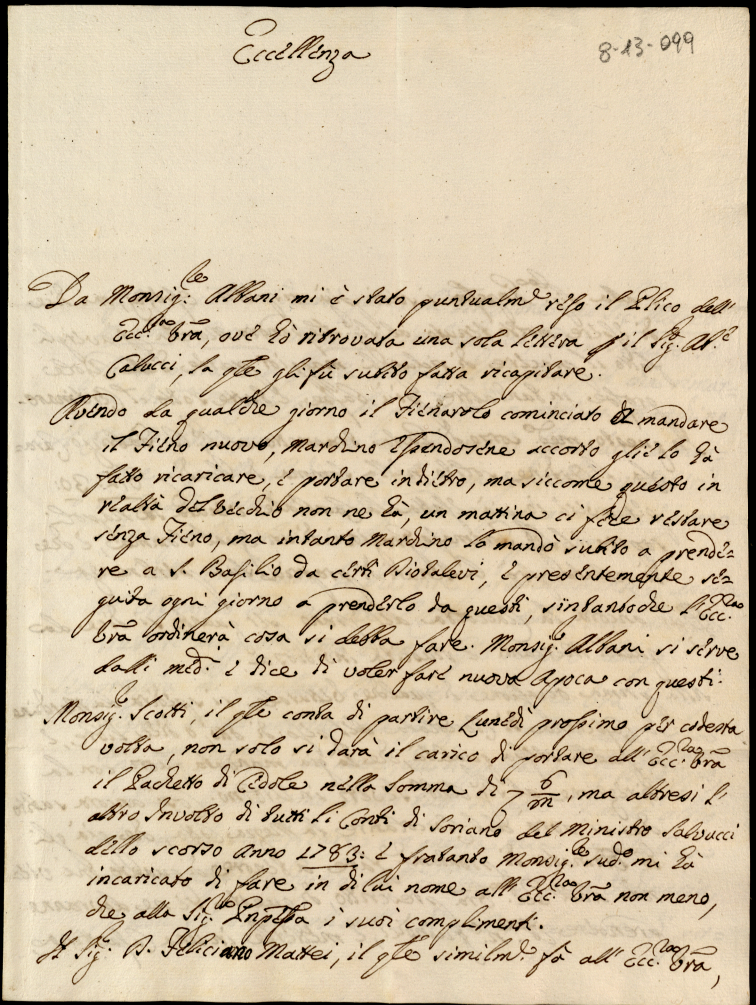 Eccellenza
8-13-099
Da Monsig:re Albani mi è stato puntualm.e reso il Plico dell'
Ecc.za Vrã, ove hò ritrovata una sola lettera p il Sig. Ab.e
Calucci, la qle gli fù subito fatta ricapitare.
Avendo da qualche giorno il Fienarolo cominciato a mandare
il Fieno nuovo, Mardino essendosene accorto glie lo hà
fatto ricaricare, e portare indietro, ma siccome questo in
realtà del vecchio non ne hà, un mattina ci fece restare
senza Fieno, ma intanto Mardino lo mandò subito a prende=
re a S. Basilio da certi Biotalevi, e presentemente se=
guita ogni giorno a prenderlo da questi, sintantoche l'Ecc.za
Vrã ordinerà cosa si debba fare. Monsig.e Albani si serve
dalli med.i e dice di voler fare nuova Apoca con questi.
Monsig.e Scotti, il qle conta di partire Lunedì prossimo per codesta
volta, non solo si darà il carico di portare all'Ecc.za Vrã
il Pachetto di Cedole nella somma di 7 6/m, ma altresì l'
altro Involto di tutti li Conti di Soriano del Ministro Salvucci
dello scorso Anno 1783: e fratanto Monsig.re sud.o mi hà
incaricato di fare in di lui nome all'Ecc.za Vrã non meno,
che alla Sig.ra Pnpessa i suoi complimenti.
Il Sig. D. Feliciano Mattei, il qle similm.e fà all'Ecc.za Vrã,